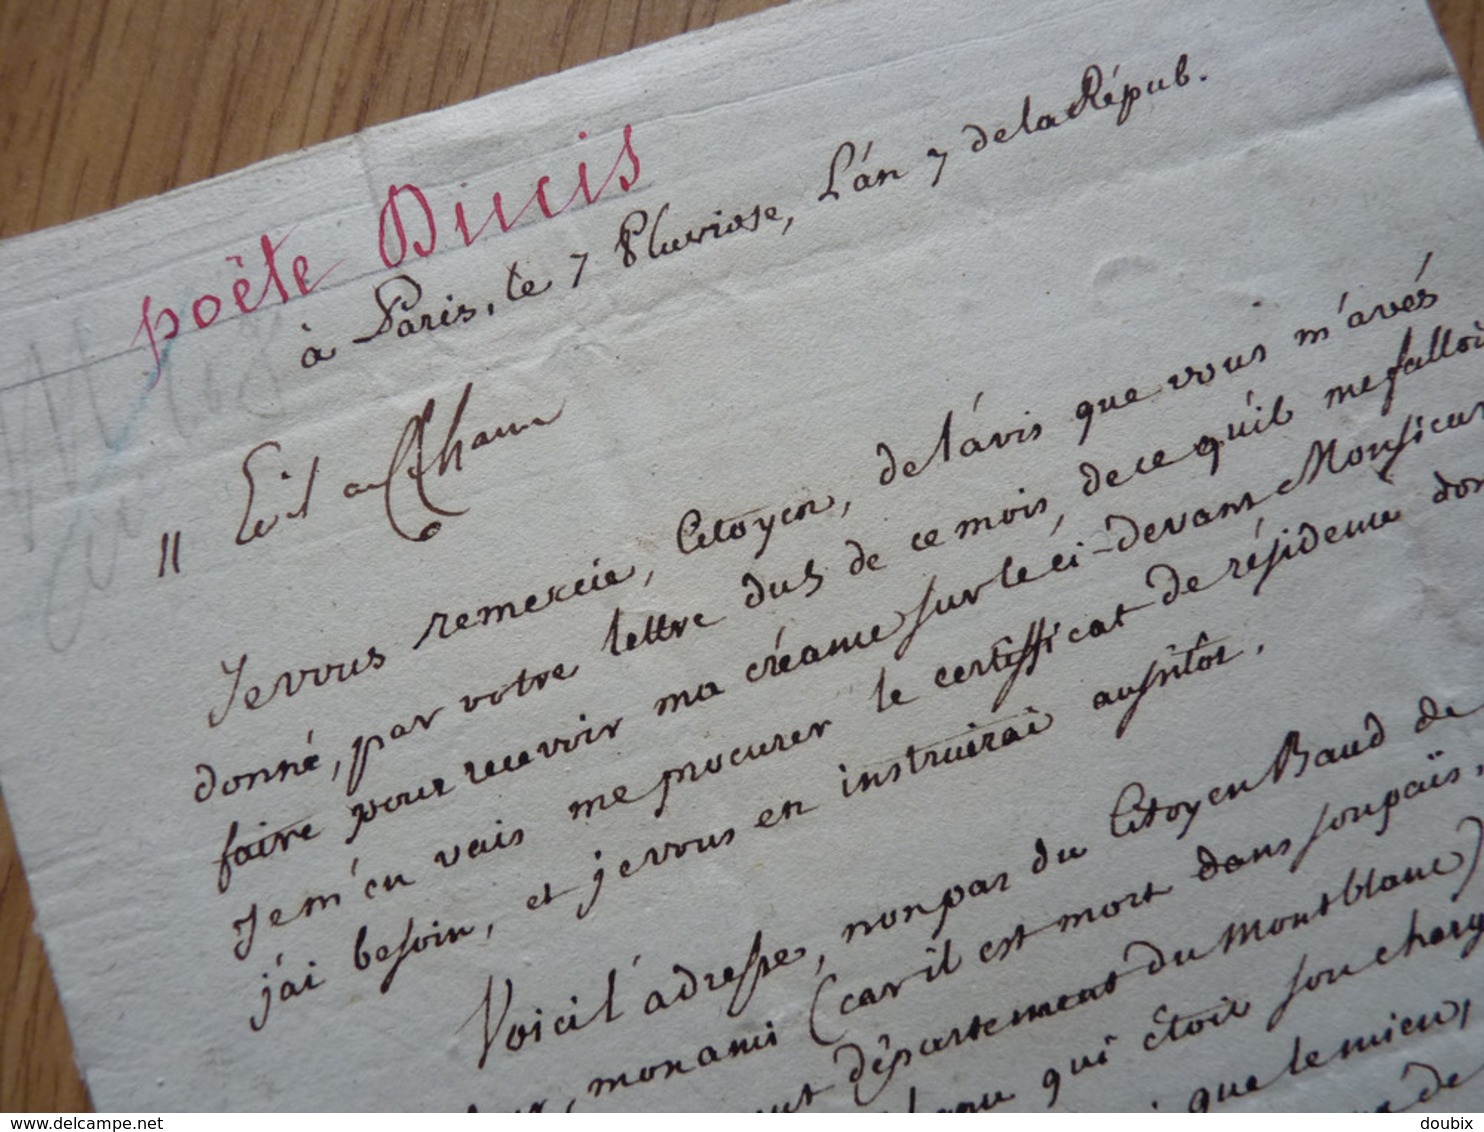 poëte Ducis
à Paris, le 7 Pluviose, L'an 7 de la Répub.
Je vous remercie, Citoyen, de l'avis que vous m'avés
donné, par votre lettre du 5 de ce mois, de ce qu'il me falloit
faire pour recevoir ma créance sur le ci-devant Monsieur
Je m'en vais me procurer le certifficat de résidence dont
j'ai besoin, et je vous en instruirai aussitôt.
Voici l'adresse, non pas du Citoyen Baud de
mon ami (car il est mort dans son païs,
département du Montblanc)
qui étoit son charg
que le mien,
de
delcampe.net
doubix